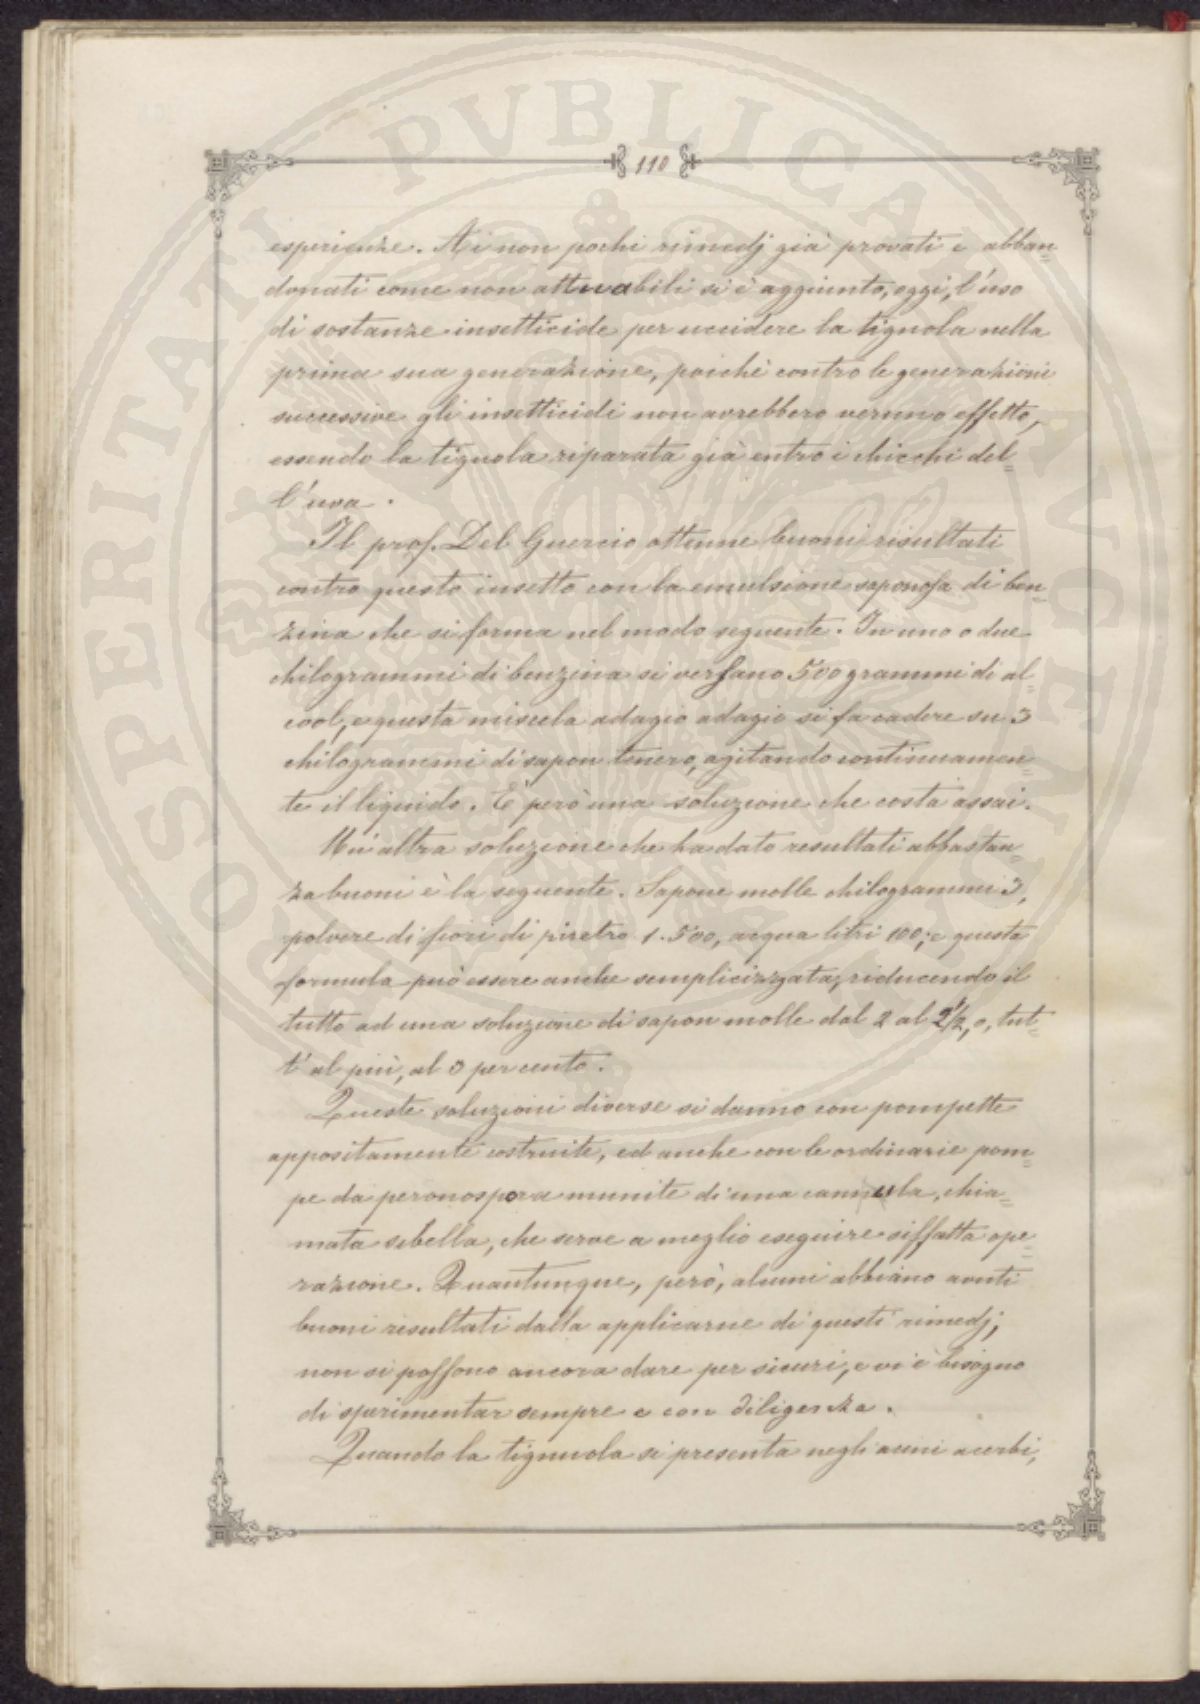 PROSPERITATI PVBLICAE AVGENDAE
110
esperienze. Ai non pochi rimedj già provati e abban=
donati come non attuabili si è aggiunto, oggi, l'uso
di sostanze insetticide per uccidere la tignola nella
prima sua generazione, poichè contro le generazioni
successive gli insetticidi non avrebbero verun effetto,
essendo la tignola riparata già entro i chicchi del=
l'uva.
Il prof. Del Guercio ottenne buoni risultati
contro questo insetto con la emulsione saponosa di ben=
zina che si forma nel modo seguente. In uno o due
chilogrammi di benzina si versano 500 grammi di al=
cool, e questa miscela adagio adagio si fa cadere su 3
chilogrammi di sapon tenero, agitando continuamen=
te il liquido. È però una soluzione che costa assai.
Un'altra soluzione che ha dato resultati abbastan=
za buoni è la seguente. Sapone molle chilogrammi 3,
polvere di fiori di piretro 1.500, acqua litri 100; e questa
formula può essere anche semplicizzata, riducendo il
tutto ad una soluzione di sapon molle dal 2 al 2½, o, tut=
t'al più, al 3 per cento.
Queste soluzioni diverse si danno con pompette
appositamente costruite, ed anche con le ordinarie pom=
pe da peronospora munite di una cannula, chia=
mata sibella, che serve a meglio eseguire siffatta ope=
razione. Quantunque, però, alcuni abbiano avuti
buoni resultati dalla applicarne di questi rimedj,
non si possono ancora dare per sicuri, e vi è bisogno
di sperimentar sempre e con diligenza.
Quando la tignuola si presenta negli acini acerbi,